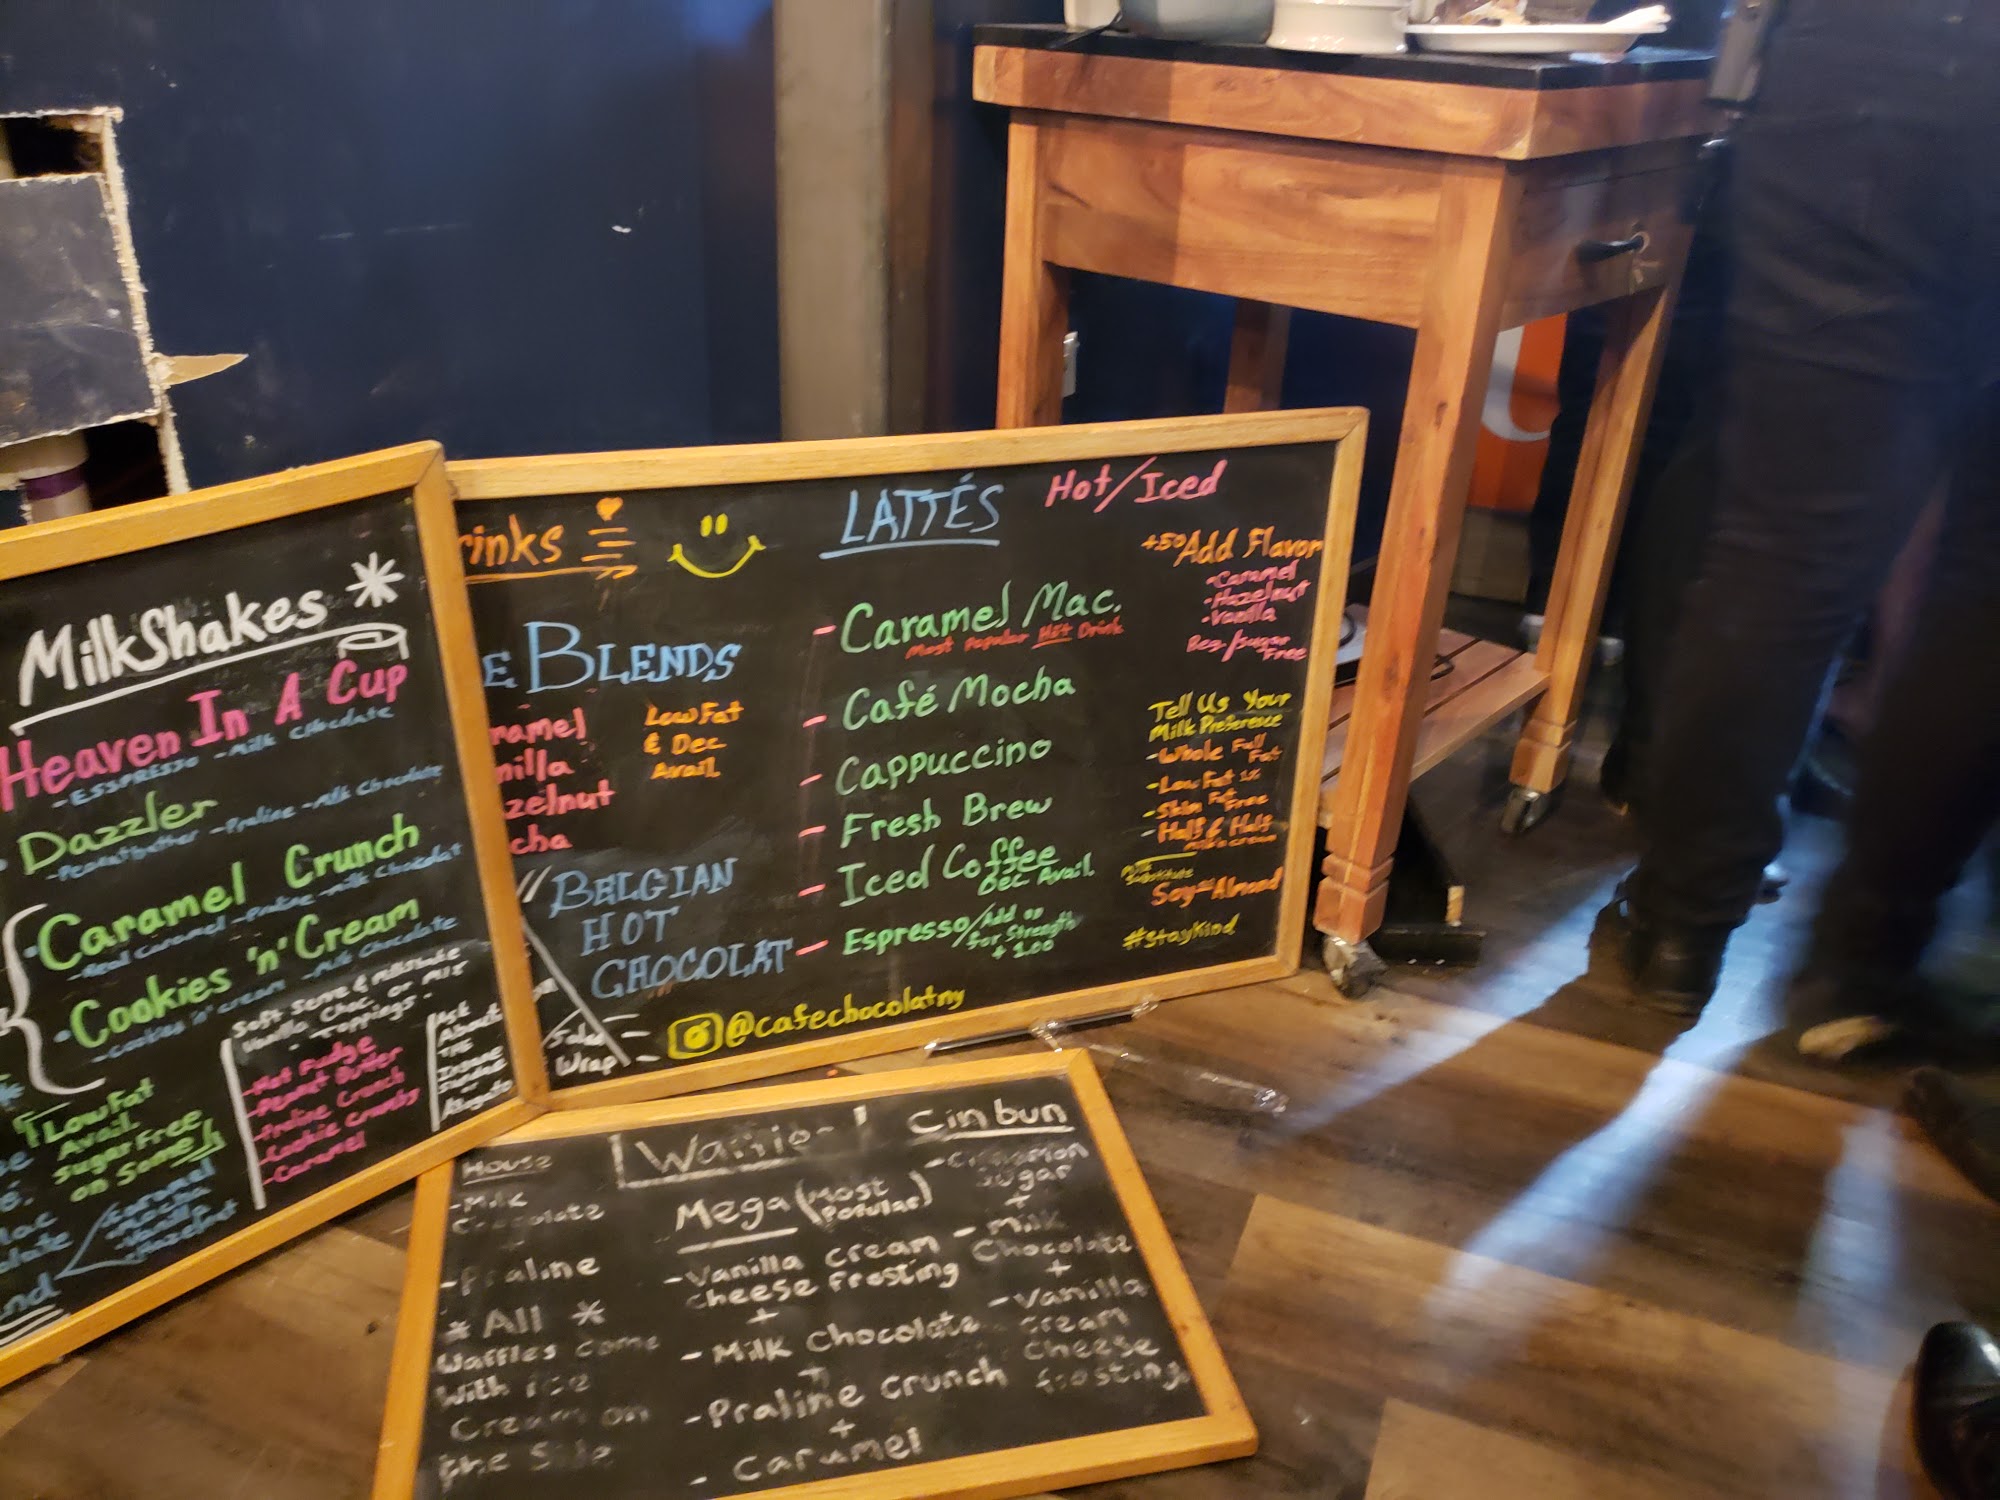 MilkShakes
Heaven In A Cup
- ESSPRESSO - Milk Chocolate
Dazzler
- Peanutbutter - Praline - Milk Chocolate
• Caramel Crunch
- Real Caramel - Praline - Milk Chocolat
• Cookies 'n' Cream
- Cookies 'n' cream - Milk Chocolate
Soft Serve & Milkshake
Vanilla, Choc. or Mix
- Toppings -
- Hot Fudge
- Peanut Butter
- Praline Crunch
- Cookie Crumbs
- Caramel
Ask
About
THE
Insane
Low Fat
Avail.
sugar Free
on Some
- Caramel
- Mocha
- Vanilla
- Hazelnut
rinks
E BLENDS
ramel
nilla
zelnut
cha
Low Fat
& Dec
Avail.
BELGIAN
HOT
CHOCOLAT
Salad
Wrap
@cafechocolatny
LATTÉS
Hot/Iced
- Caramel Mac.
Most Popular Hot Drink
- Café Mocha
- Cappuccino
- Fresh Brew
- Iced Coffee
Dec Avail.
- Espresso/Add on
for Strength
+ 1.00
+50 Add Flavor
- Caramel
- Hazelnut
- Vanilla
Reg./Sugar
Free
Tell Us Your
Milk Preference
- Whole Full
Fat
- Low Fat 1%
- Skim Fat
Free
- Half & Half
Milk & cream
Milk
Substitute
Soy Almond
#StayKind
House
- Milk
Chocolate
- Praline
* All *
Waffles come
With ice
Cream on
the Side
Mega (Most
Popular)
- Vanilla cream
cheese Frosting
+
- Milk Chocolate
+
- Praline crunch
+
- Caramel
Cin bun
- Cinnamon
Sugar
+
- Milk
Chocolate
+
- Vanilla
cream
cheese
frosting